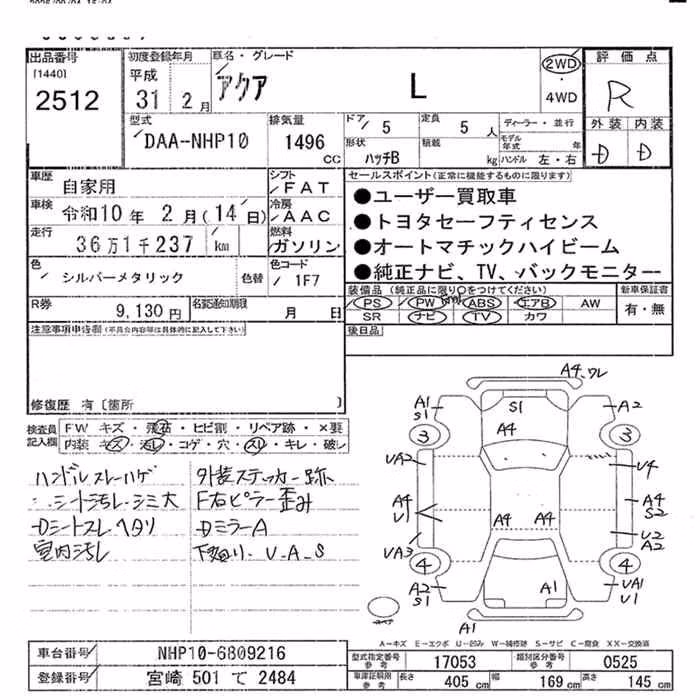 出品番号
[1440]
2512
初度登録年月
平成
31年 2月
車名・グレード
アクア L
2WD
・
4WD
評価点
R
外装 内装
D D
型式
DAA-NHP10
排気量
1496
cc
ドア 5
定員 5 人
形状
ハッチB
積載
kg
ディーラー・並行
モデル年式 年
ハンドル 左・右
車歴 自家用
シフト FAT
車検 令和10年 2月(14日)
冷房 AAC
走行 36万1千237 km
燃料 ガソリン
色 シルバーメタリック 色替
色コード 1F7
R券 9,130円
名変通知期限 月 日
セールスポイント(正常に機能するものに限ります)
●ユーザー買取車
●トヨタセーフティセンス
●オートマチックハイビーム
●純正ナビ、TV、バックモニター
装備品 (純正品に限り○をつけてください)
PS PW ABS エアB AW
SR ナビ TV カワ
新車保証書
有・無
後日品
注意事項申告欄(不具合内容等は具体的に記入して下さい)
修復歴 有〔箇所 〕
検査員記入欄
FW キズ・飛石・ヒビ割・リペア跡・×要
内装 キズ・汚レ・コゲ・穴・スリ・キレ・破レ
ハンドルスレ・ハゲ
シート汚レ・シミ大
Dシートスレ ヘタリ
室内汚レ
外装ステッカー跡
F右ピラー歪み
DミラーA
下廻り、U-A-S
A4.ワレ
A1
S1
S1
A2
3
A4
3
UA2
U4
A4
U1
A4
S2
A4 A4
U2
A2
UA3
4
4
A2
S1
A1
UA1
U1
A1
スペア
A-キズ E-エクボ U-凹み W-補修跡 S-サビ C-腐食 XX-交換済
車台番号 NHP10-6809216
登録番号 宮崎 501 て 2484
型式指定番号
参考
17053
類別区分番号
参考
0525
車庫証明用
参考
長さ 405 cm
幅 169 cm
高さ 145 cm